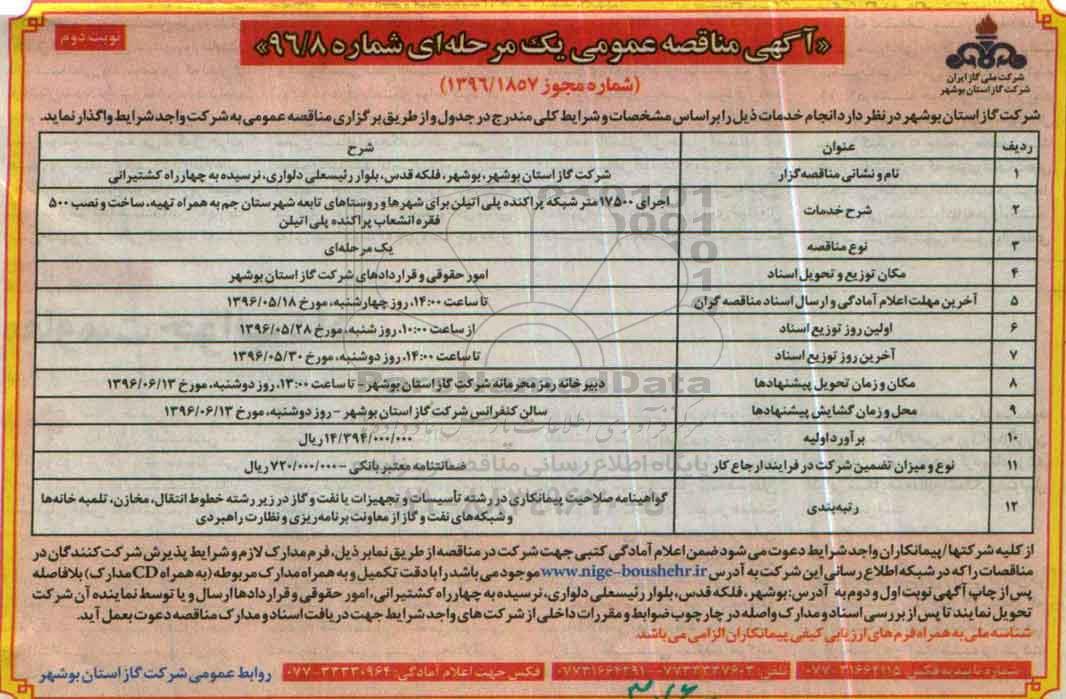 «آگهی مناقصه عمومی یک مرحله‌ای شماره ۹۶/۸»
نوبت دوم
(شماره مجوز ۱۳۹۶/۱۸۵۷)
شرکت ملی گاز ایران
شرکت گاز استان بوشهر
شرکت گاز استان بوشهر در نظر دارد انجام خدمات ذیل را براساس مشخصات و شرایط کلی مندرج در جدول و از طریق برگزاری مناقصه عمومی به شرکت واجد شرایط واگذار نماید.
ردیف عنوان شرح
۱ نام و نشانی مناقصه‌گزار شرکت گاز استان بوشهر، بوشهر، فلکه قدس، بلوار رئیسعلی دلواری، نرسیده به چهارراه کشتیرانی
۲ شرح خدمات اجرای ۱۷۵۰۰ متر شبکه پراکنده پلی اتیلن برای شهرها و روستاهای تابعه شهرستان جم به همراه تهیه، ساخت و نصب ۵۰۰
فقره انشعاب پراکنده پلی اتیلن
۳ نوع مناقصه یک مرحله‌ای
۴ مکان توزیع و تحویل اسناد امور حقوقی و قراردادهای شرکت گاز استان بوشهر
۵ آخرین مهلت اعلام آمادگی و ارسال اسناد مناقصه گران تا ساعت ۱۴:۰۰، روز چهارشنبه، مورخ ۱۳۹۶/۰۵/۱۸
۶ اولین روز توزیع اسناد از ساعت ۱۰:۰۰، روز شنبه، مورخ ۱۳۹۶/۰۵/۲۸
۷ آخرین روز توزیع اسناد تا ساعت ۱۴:۰۰، روز دوشنبه، مورخ ۱۳۹۶/۰۵/۳۰
۸ مکان و زمان تحویل پیشنهادها دبیرخانه رمز محرمانه شرکت گاز استان بوشهر - تا ساعت ۱۳:۰۰، روز دوشنبه، مورخ ۱۳۹۶/۰۶/۱۳
۹ محل و زمان گشایش پیشنهادها سالن کنفرانس شرکت گاز استان بوشهر - روز دوشنبه، مورخ ۱۳۹۶/۰۶/۱۳
۱۰ برآورد اولیه ۱۴/۳۹۴/۰۰۰/۰۰۰ ریال
۱۱ نوع و میزان تضمین شرکت در فرایند ارجاع کار ضمانتنامه معتبر بانکی - ۷۲۰/۰۰۰/۰۰۰ ریال
۱۲ رتبه‌بندی گواهینامه صلاحیت پیمانکاری در رشته تأسیسات و تجهیزات یا نفت و گاز در زیر رشته خطوط انتقال، مخازن، تلمبه خانه‌ها
و شبکه‌های نفت و گاز از معاونت برنامه‌ریزی و نظارت راهبردی
از کلیه شرکتها / پیمانکاران واجد شرایط دعوت می شود ضمن اعلام آمادگی کتبی جهت شرکت در مناقصه از طریق نمابر ذیل، فرم مدارک لازم و شرایط پذیرش شرکت کنندگان در
مناقصات را که در شبکه اطلاع رسانی این شرکت به آدرس www.nigc-boushehr.ir موجود می باشد را با دقت تکمیل و به همراه مدارک مربوطه (به همراه CD مدارک) بلافاصله
پس از چاپ آگهی نوبت اول و دوم به آدرس: بوشهر، فلکه قدس، بلوار رئیسعلی دلواری، نرسیده به چهارراه کشتیرانی، امور حقوقی و قراردادها ارسال و یا توسط نماینده آن شرکت
تحویل نمایند تا پس از بررسی اسناد و مدارک واصله در چارچوب ضوابط و مقررات داخلی از شرکت های واجد شرایط جهت دریافت اسناد و مدارک مناقصه دعوت بعمل آید.
شناسه ملی به همراه فرم های ارزیابی کیفی پیمانکاران الزامی می باشد.
فکس جهت اعلام آمادگی: ۳۳۳۳۰۹۶۴-۰۷۷
روابط عمومی شرکت گاز استان بوشهر